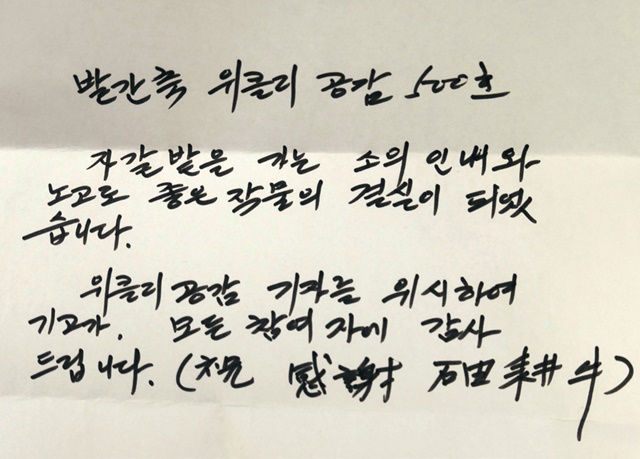 발간축 위클리 공감 500호
자갈밭을 가는 소의 인내와
노고로 좋은 작물의 결실이 되었
습니다.
위클리 공감 기자를 위시하여
기고가, 모든 참여자에 감사
드립니다. (祝 感謝 石田耕牛)